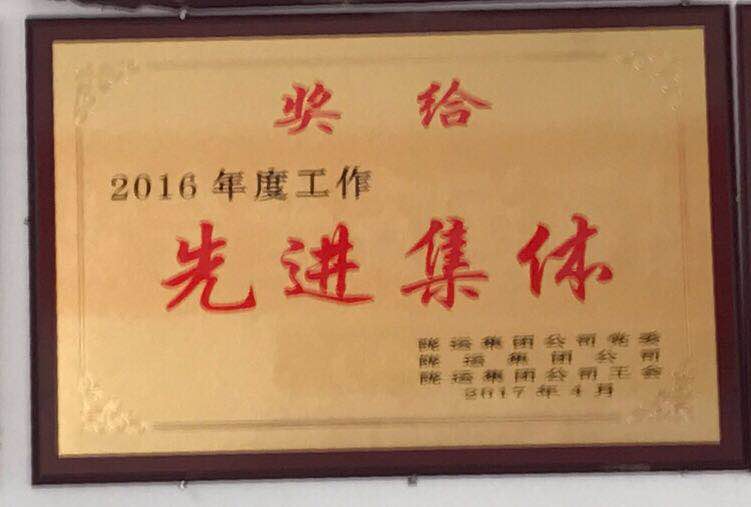 奖给
2016年度工作
先进集体
陇运集团公司党委
陇运集团公司
陇运集团公司工会
2017年4月